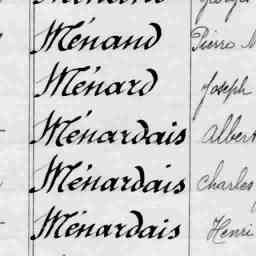 Ménand Pierre
Ménard Joseph
Ménardais Albert
Ménardais Charles
Ménardais Henri